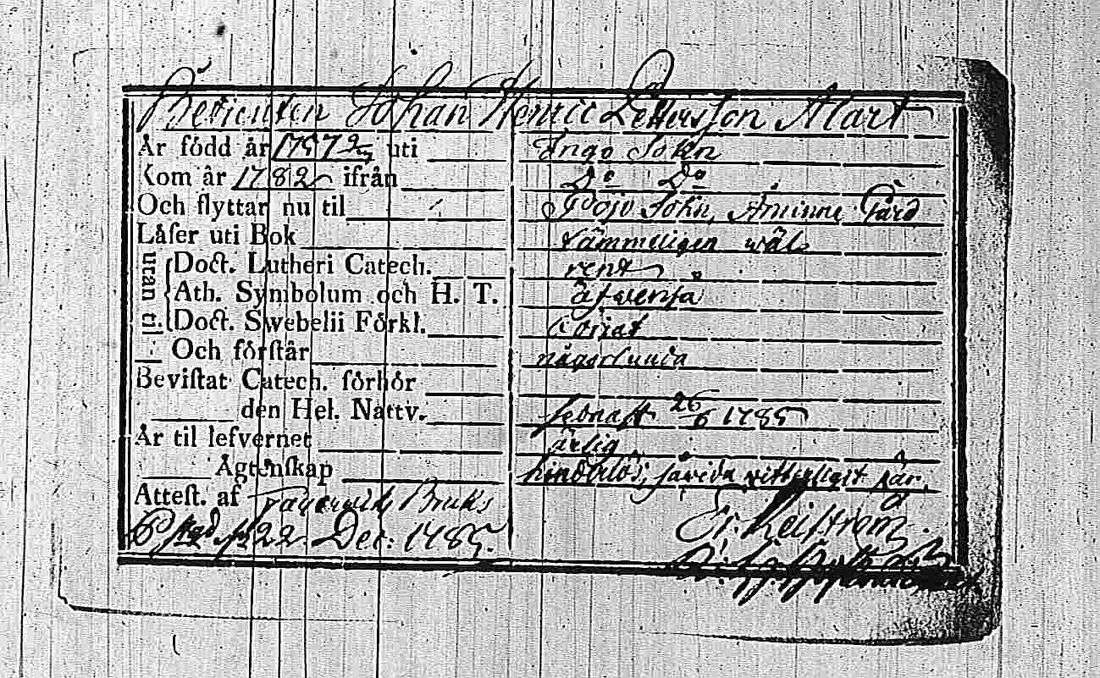 Betienten Johan Henric Pettersson Alart
År född år 1757 uti Ingo Sokn
Kom år 1782 ifrån Do Do
Och flyttar nu til Pojo Sokn, Åminne Gård
Låser uti Bok tämmeligen wäl
utan Doct. Lutheri Catech. rent
Ath. Symbolum och H. T. äfwensa
til. Doct. Swebelii Förkl.
Och förstår någorlunda
Bevistat Catech. förhör
den Hel. Nattv. sednast 26/6 1785
År til lefvernet ärlig
Ägtenskap hinderlös, såvida witterligit är.
Attest. af Fagerwiks Bruks
22 Dec. 1785.